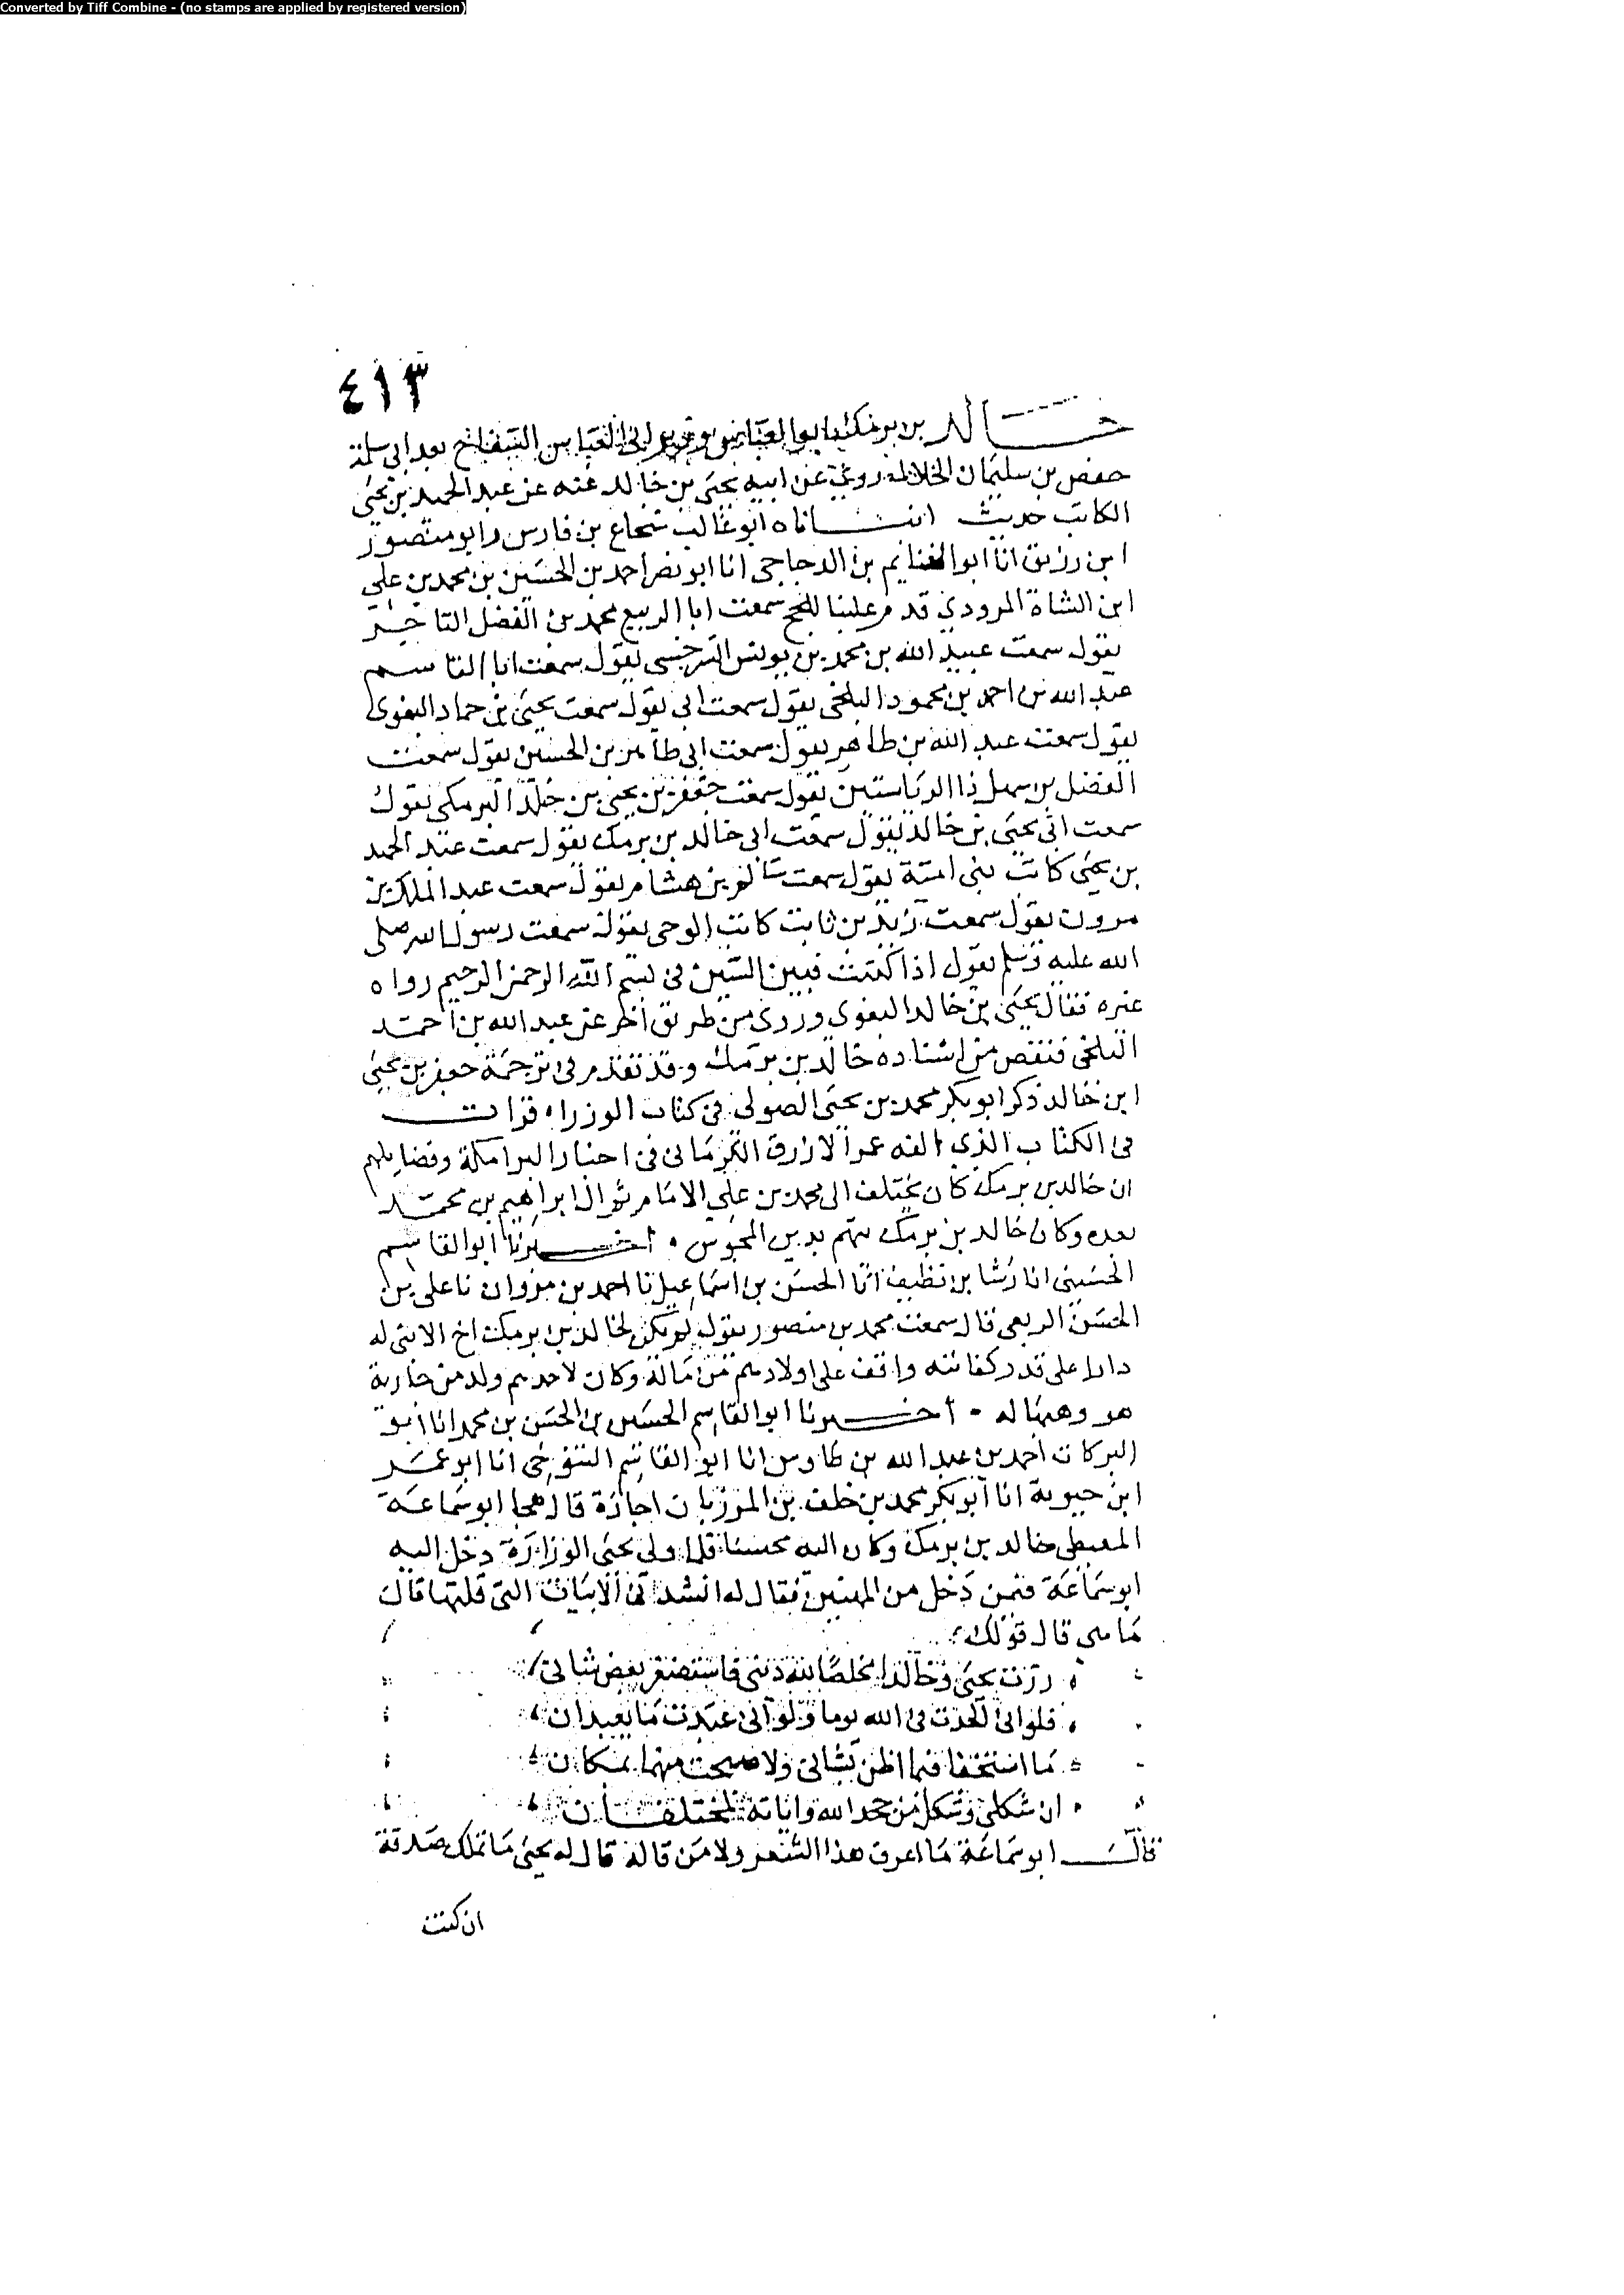 Converted by Tiff Combine - (no stamps are applied by registered version)
٤١٣
خالد بن برمك ابو العباس وزير ابى العباس السفاح بعد ابى سلمة
حفص بن سليمان الخلال روى عن ابيه يحيى بن خالد عنه عن عبد الحميد بن يحيى
الكاتب حديث انبأناه ابو غالب شجاع بن فارس وابو منصور
ابن رزيق انا ابو الغنايم بن الدجاجى انا ابو نصر احمد بن الحسين بن محمد بن على
ابن الشاة المرودى قدم علينا للحج سمعت ابا الربيع محمد بن الفضل التاجر
يقول سمعت عبيد الله بن محمد بن يونس السرخسى يقول سمعت ابا القاسم
عبد الله بن احمد بن محمود البلخى يقول سمعت ابى يقول سمعت يحيى بن حماد البغوى
يقول سمعت عبد الله بن طاهر يقول سمعت ابى طاهر بن الحسين يقول سمعت
الفضل بن سهل ذا الرياستين يقول سمعت جعفر بن يحيى بن خلد البرمكى يقول
سمعت ابى يحيى بن خالد يقول سمعت ابى خالد بن برمك يقول سمعت عبد الحميد
بن يحيى كاتب بنى امية يقول سمعت سالم بن هشام يقول سمعت عبد الملك بن
مرون يقول سمعت زيد بن ثابت كاتب الوحى يقول سمعت رسول الله صلى
الله عليه وسلم يقول اذا كتبت فبين السين فى بسم الله الرحمن الرحيم رواه
غيره فقال يحيى بن خالد البغوى وروى من طريق اخر عن عبد الله بن احمد
البلخى فنقص من اسناده خالد بن برمك وقد تقدم فى ترجمة جعفر بن يحيى
ابن خالد ذكر ابو بكر محمد بن يحيى الصولى فى كتاب الوزراء قرات
فى الكتاب الذى الفه عمر الازرق الكرمانى فى اخبار البرامكة وفضايلهم
ان خالد بن برمك كان يختلف الى محمد بن على الامام ثم الى ابراهيم بن محمد
بعده وكان خالد بن برمك يتهم بدين المجوس . اخبرنا ابو القاسم
الحسينى انا رشا بن نظيف انا الحسن بن اسماعيل نا احمد بن مروان نا على بن
الحسن الربعى قال سمعت محمد بن منصور يقول لم يكن لخالد بن برمك اخ الا بنى له
دارا على قدر كفايته واقف على اولادهم من ماله وكان لاحدهم ولد من جارية
هو وهبها له . اخبرنا ابو القاسم الحسين بن الحسن بن محمد انا ابو
البركات احمد بن عبد الله بن طاوس انا ابو القاسم التنوخى انا ابو عمر
ابن حيوية انا ابو بكر محمد بن خلف بن المرزبان اجازة قال هجا ابو سماعة
المعيطى خالد بن برمك وكان اليه محسنا فلما ولى يحيى الوزارة دخل اليه
ابو سماعة فيمن دخل من المهنين فقال له انشدنى الابيات التى قلتها قال
ما هى قال قولك
زرت يحيى وخالدا مخلصا لله دينى فاستصغر بعض شانى
فلو انى الحدت فى الله يوما ولو انى عبدت ما يعبدان
ما استخفا فيما اظن بشانى ولاصبحت منهما بمكان
ان شكلى وشكل من جحد الله واياته لمختلفان
قال ابو سماعة ما اعرف هذا الشعر ولا من قاله قال له يحيى ما تملك صدقة
ان كنت